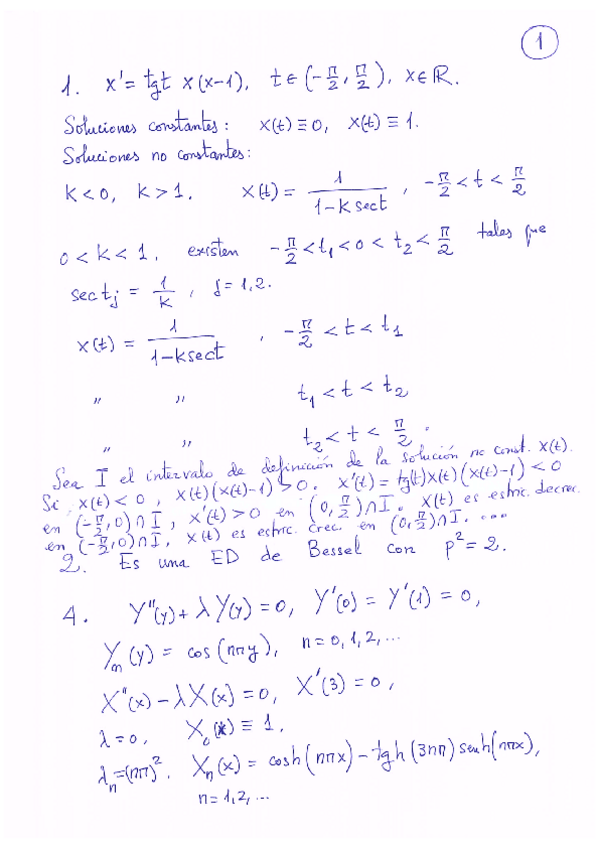 1
1. x' = tgt x(x-1), t ∈ (-π/2, π/2), x ∈ ℝ.
Soluciones constantes: x(t) ≡ 0, x(t) ≡ 1.
Soluciones no constantes:
K < 0, K > 1. x(t) = 1/(1-K sect), -π/2 < t < π/2
0 < K < 1. existen -π/2 < t₁ < 0 < t₂ < π/2 tales que
sec tⱼ = 1/K, j = 1,2.
x(t) = 1/(1-K sect), -π/2 < t < t₁
" " t₁ < t < t₂
" " t₂ < t < π/2.
Sea I el intervalo de definición de la solución no const. x(t).
Si x(t) < 0, x(t)(x(t)-1) > 0. x'(t) = tg(t)x(t)(x(t)-1) < 0
en (-π/2, 0)∩I, x'(t) > 0 en (0, π/2)∩I. x(t) es estric. decrec.
en (-π/2, 0)∩I, x(t) es estric. crec. en (0, π/2)∩I. ...
2. Es una ED de Bessel con p² = 2.
4. Y''(y) + λY(y) = 0, Y'(0) = Y'(1) = 0,
Yₙ(y) = cos(nπy), n = 0, 1, 2, ...
X''(x) - λX(x) = 0, X'(3) = 0,
λ = 0, X₀(x) ≡ 1.
λₙ = (nπ)². Xₙ(x) = cosh(nπx) - tgh(3nπ) senh(nπx),
n = 1, 2, ...